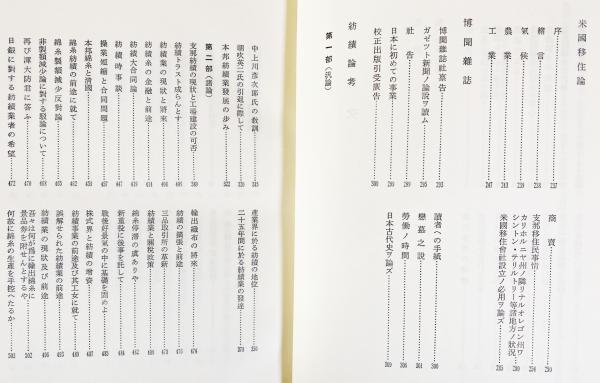 米國移住論
序……237
緒言……238
氣候……238
農業……213
工業……247
商賣……250
支那移住民事情
カリホルニヤ州ノ隣リナルオレゴン州ワ
シントン・テリルトリー等諸地方ノ狀況
米國移住會社設立ノ必用ヲ論ズ
博聞雜誌
博聞雜誌社稟告
ガゼツト新聞ノ論說ヲ讀ム……295
社告……299
日本に初めての事業……299
校正出版引受廣告……300
讀者への手紙……300
戀墓之說……301
勞働ノ時間……306
日本古代史ヲ論ズ……309
紡績論考
第一部(汎論)
中上川彥次郎氏の敎訓……315
朝吹英二氏の引退に際して……320
本邦紡績業發展の步み……322
産業界に於る紡績の地位……350
二十五年間に於る紡績業の發達……370
第二部(諸論)
支那紡績の現狀と工場建設の可否……389
紡績トラスト成らんとす……398
紡績業の現狀と將來……404
紡績糸の金融と前途……411
紡績大合同論……419
紡績時事談……447
操業短縮と合同問題……457
本邦綿糸と淸國……451
綿糸紡績の前途に就て……455
綿糸製額減少反對論……462
非製額減少論に對する駁論について……468
再び渾大防君に答ふ……470
日銀に對する紡績業者の希望……472
輸出織布の將來……474
紡績の擴張と前途……475
三品取引所の革新……479
紡績業と關稅政策……480
綿糸停滯の虞ありや……482
新重役に後事を託して……484
戰後好景氣の中に基礎を固めよ……485
株式界と紡績の增資……487
紡績事業の前途及び其工女に就て……489
誤解せられたる紡績業の前途……493
紡績業の現狀及び前途……496
吾々は何が爲に輸出綿糸に
景品券を附せんとするや……502
何故に綿糸の生產を手控へたるか……503